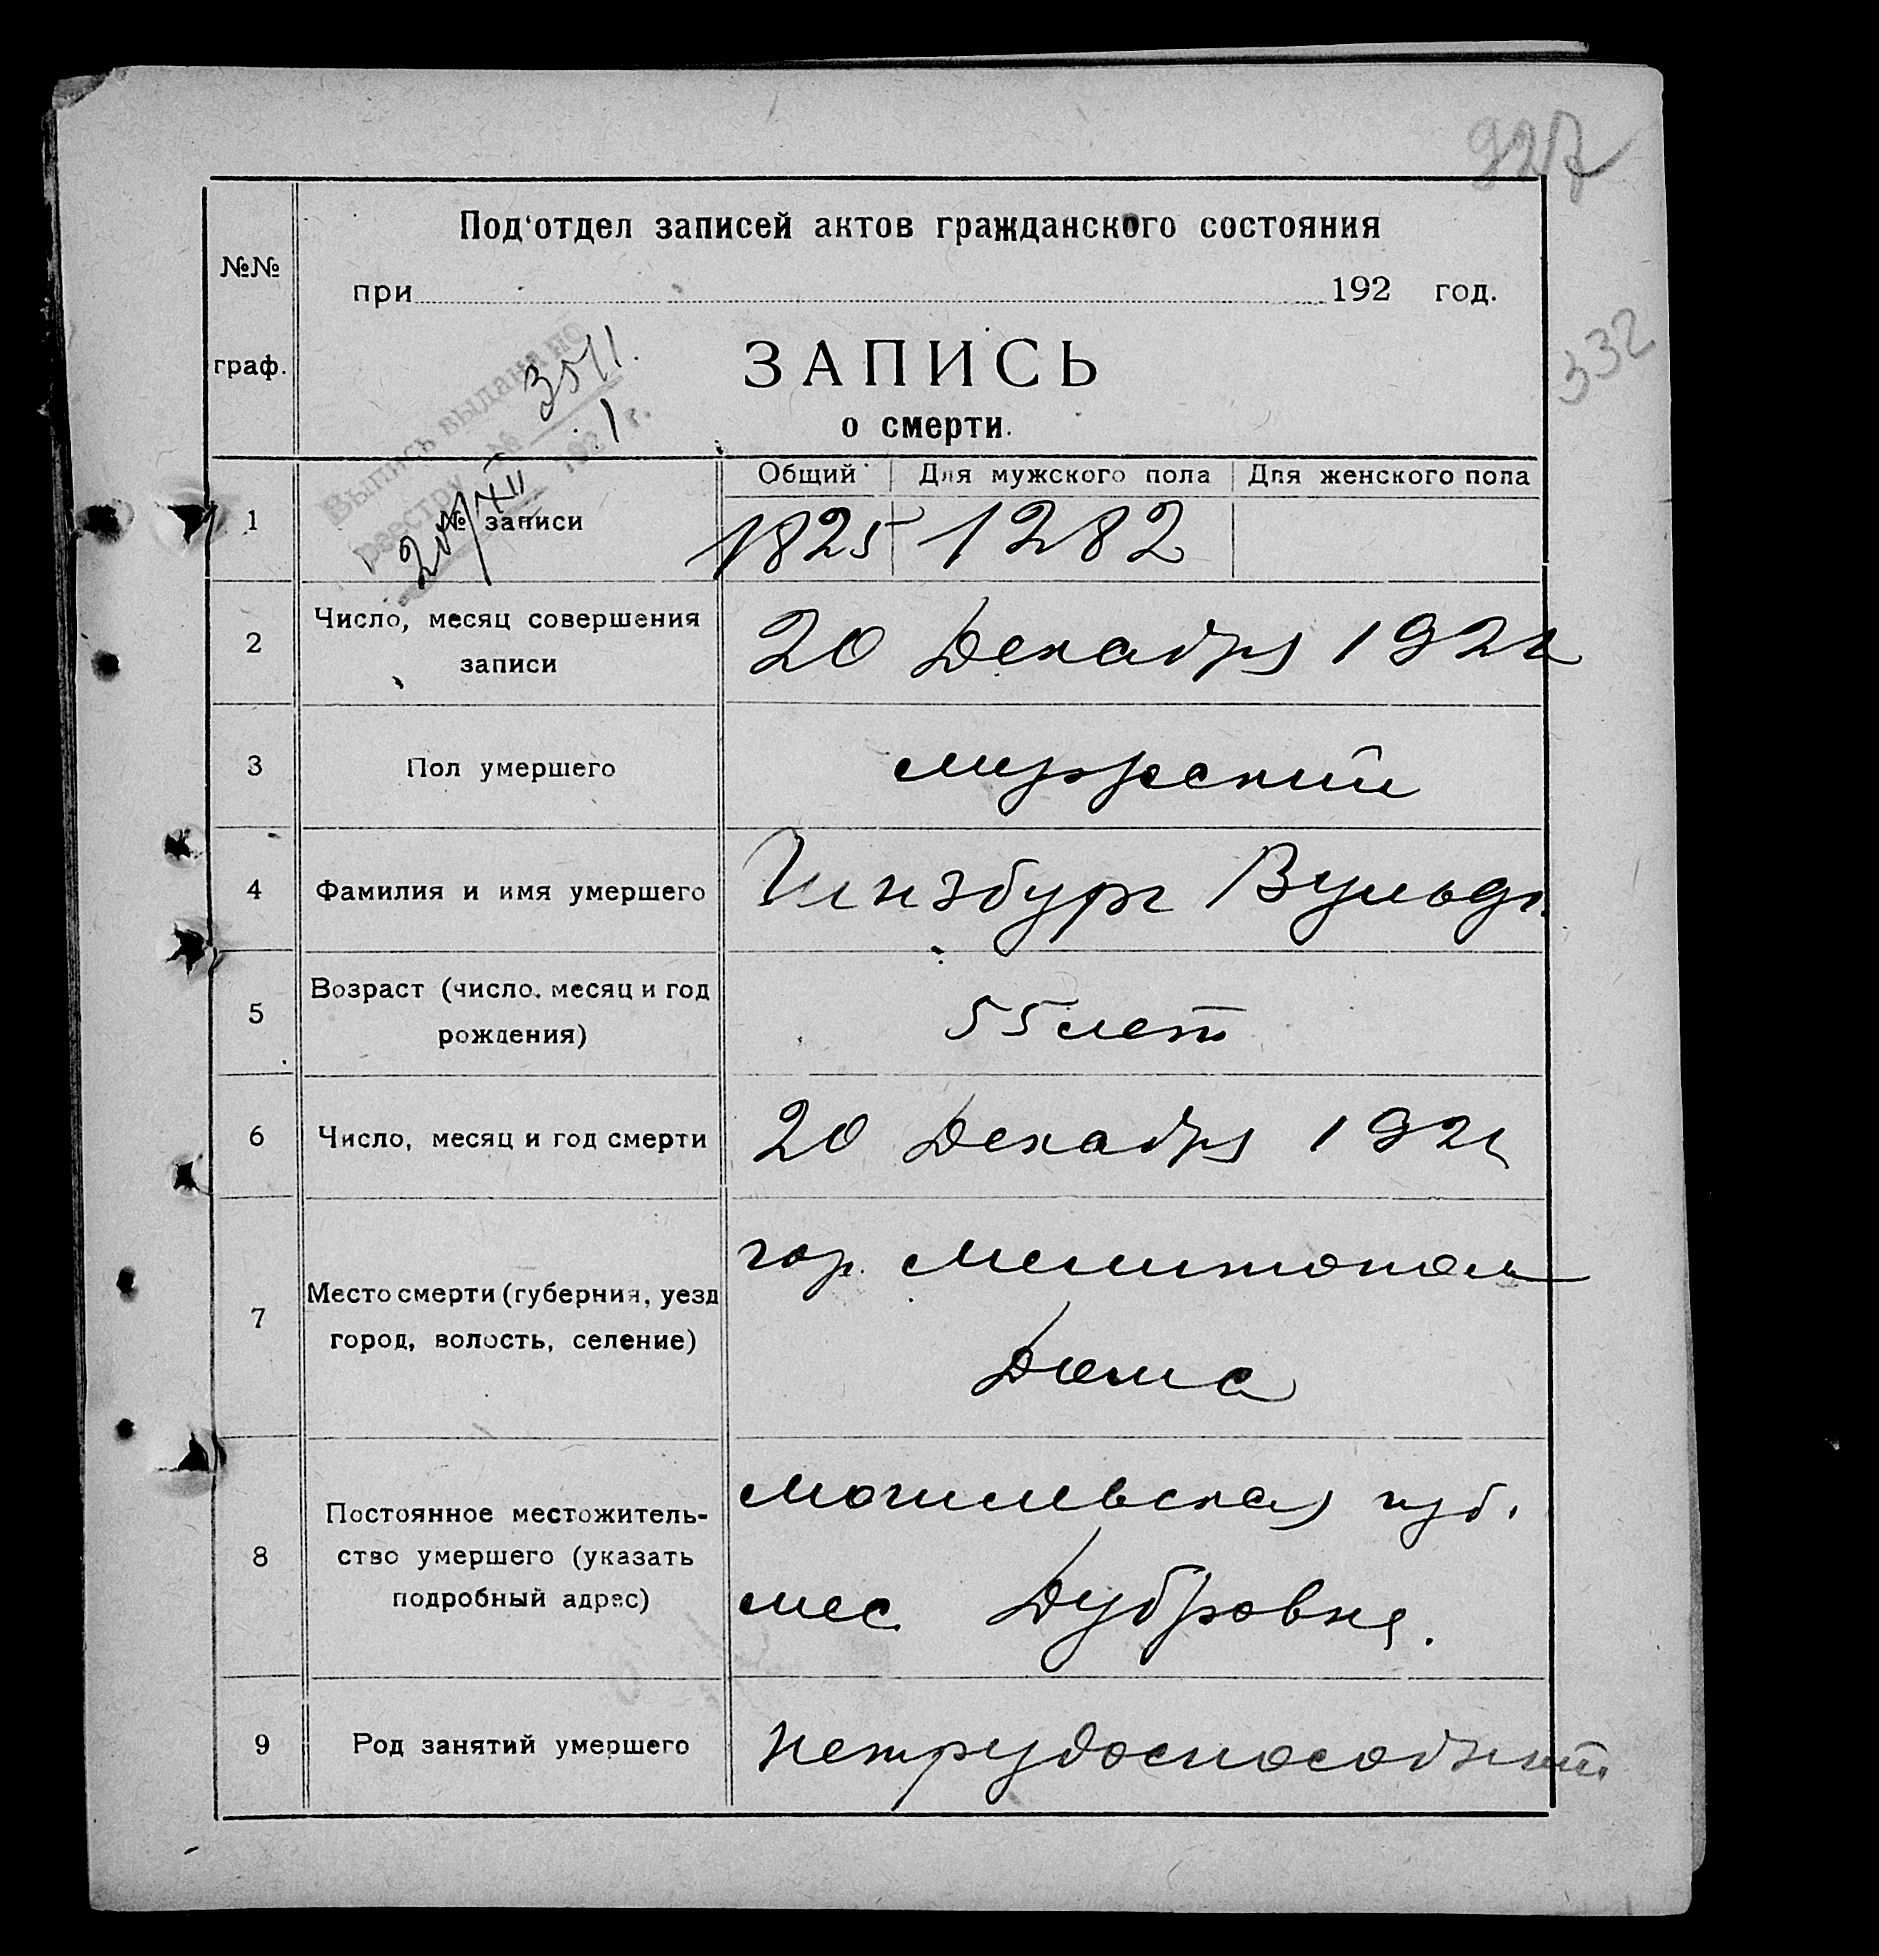 927
Под'отдел записей актов гражданского состояния
№№
при 192 год.
332
граф.
ЗАПИСЬ
о смерти.
Выпись выдана по
реестру № 3511.
20/XII 1921 г.
Общий Для мужского пола Для женского пола
1 № записи 1825 1282
2 Число, месяц совершения 20 Декабря 1921
записи
3 Пол умершего мужеский
4 Фамилия и имя умершего Гинзбург Вульф
5 Возраст (число, месяц и год 55 лет
рождения)
6 Число, месяц и год смерти 20 Декабря 1921
7 Место смерти (губерния, уезд гор. Мелитополь
город, волость, селение) Дома
8 Постоянное местожитель- Могилевская губ.
ство умершего (указать мес Дубровня.
подробный адрес)
9 Род занятий умершего нетрудоспособный